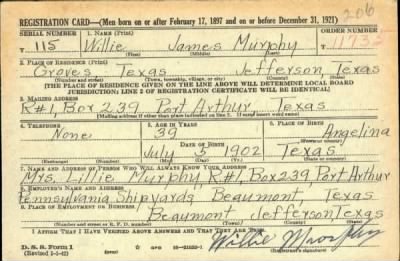 REGISTRATION CARD—(Men born on or after February 17, 1897 and on or before December 31, 1921)
206
SERIAL NUMBER 1. NAME (Print) ORDER NUMBER
T 115 Willie James Murphy 11733
(First) (Middle) (Last)
2. PLACE OF RESIDENCE (Print)
Groves, Texas Jefferson, Texas
(Number and street) (Town, township, village, or city) (County) (State)
[THE PLACE OF RESIDENCE GIVEN ON THE LINE ABOVE WILL DETERMINE LOCAL BOARD
JURISDICTION; LINE 2 OF REGISTRATION CERTIFICATE WILL BE IDENTICAL]
3. MAILING ADDRESS
R#1, Box 239 Port Arthur, Texas
[Mailing address if other than place indicated on line 2. If same insert word same]
4. TELEPHONE 5. AGE IN YEARS 6. PLACE OF BIRTH
None 39 Angelina
DATE OF BIRTH (Town or county)
July 5 1902 Texas
(Exchange) (Number) (Mo.) (Day) (Yr.) (State or country)
7. NAME AND ADDRESS OF PERSON WHO WILL ALWAYS KNOW YOUR ADDRESS
Mrs. Lillie Murphy, R#1, Box 239 Port Arthur
8. EMPLOYER'S NAME AND ADDRESS
Pennsylvania Shipyards Beaumont, Texas
9. PLACE OF EMPLOYMENT OR BUSINESS
Beaumont Jefferson Texas
(Number and street or R. F. D. number) (Town) (County) (State)
I AFFIRM THAT I HAVE VERIFIED ABOVE ANSWERS AND THAT THEY ARE TRUE.
D. S. S. Form 1
(Revised 1-5-42) GPO 16—21630-1 Willie Murphy